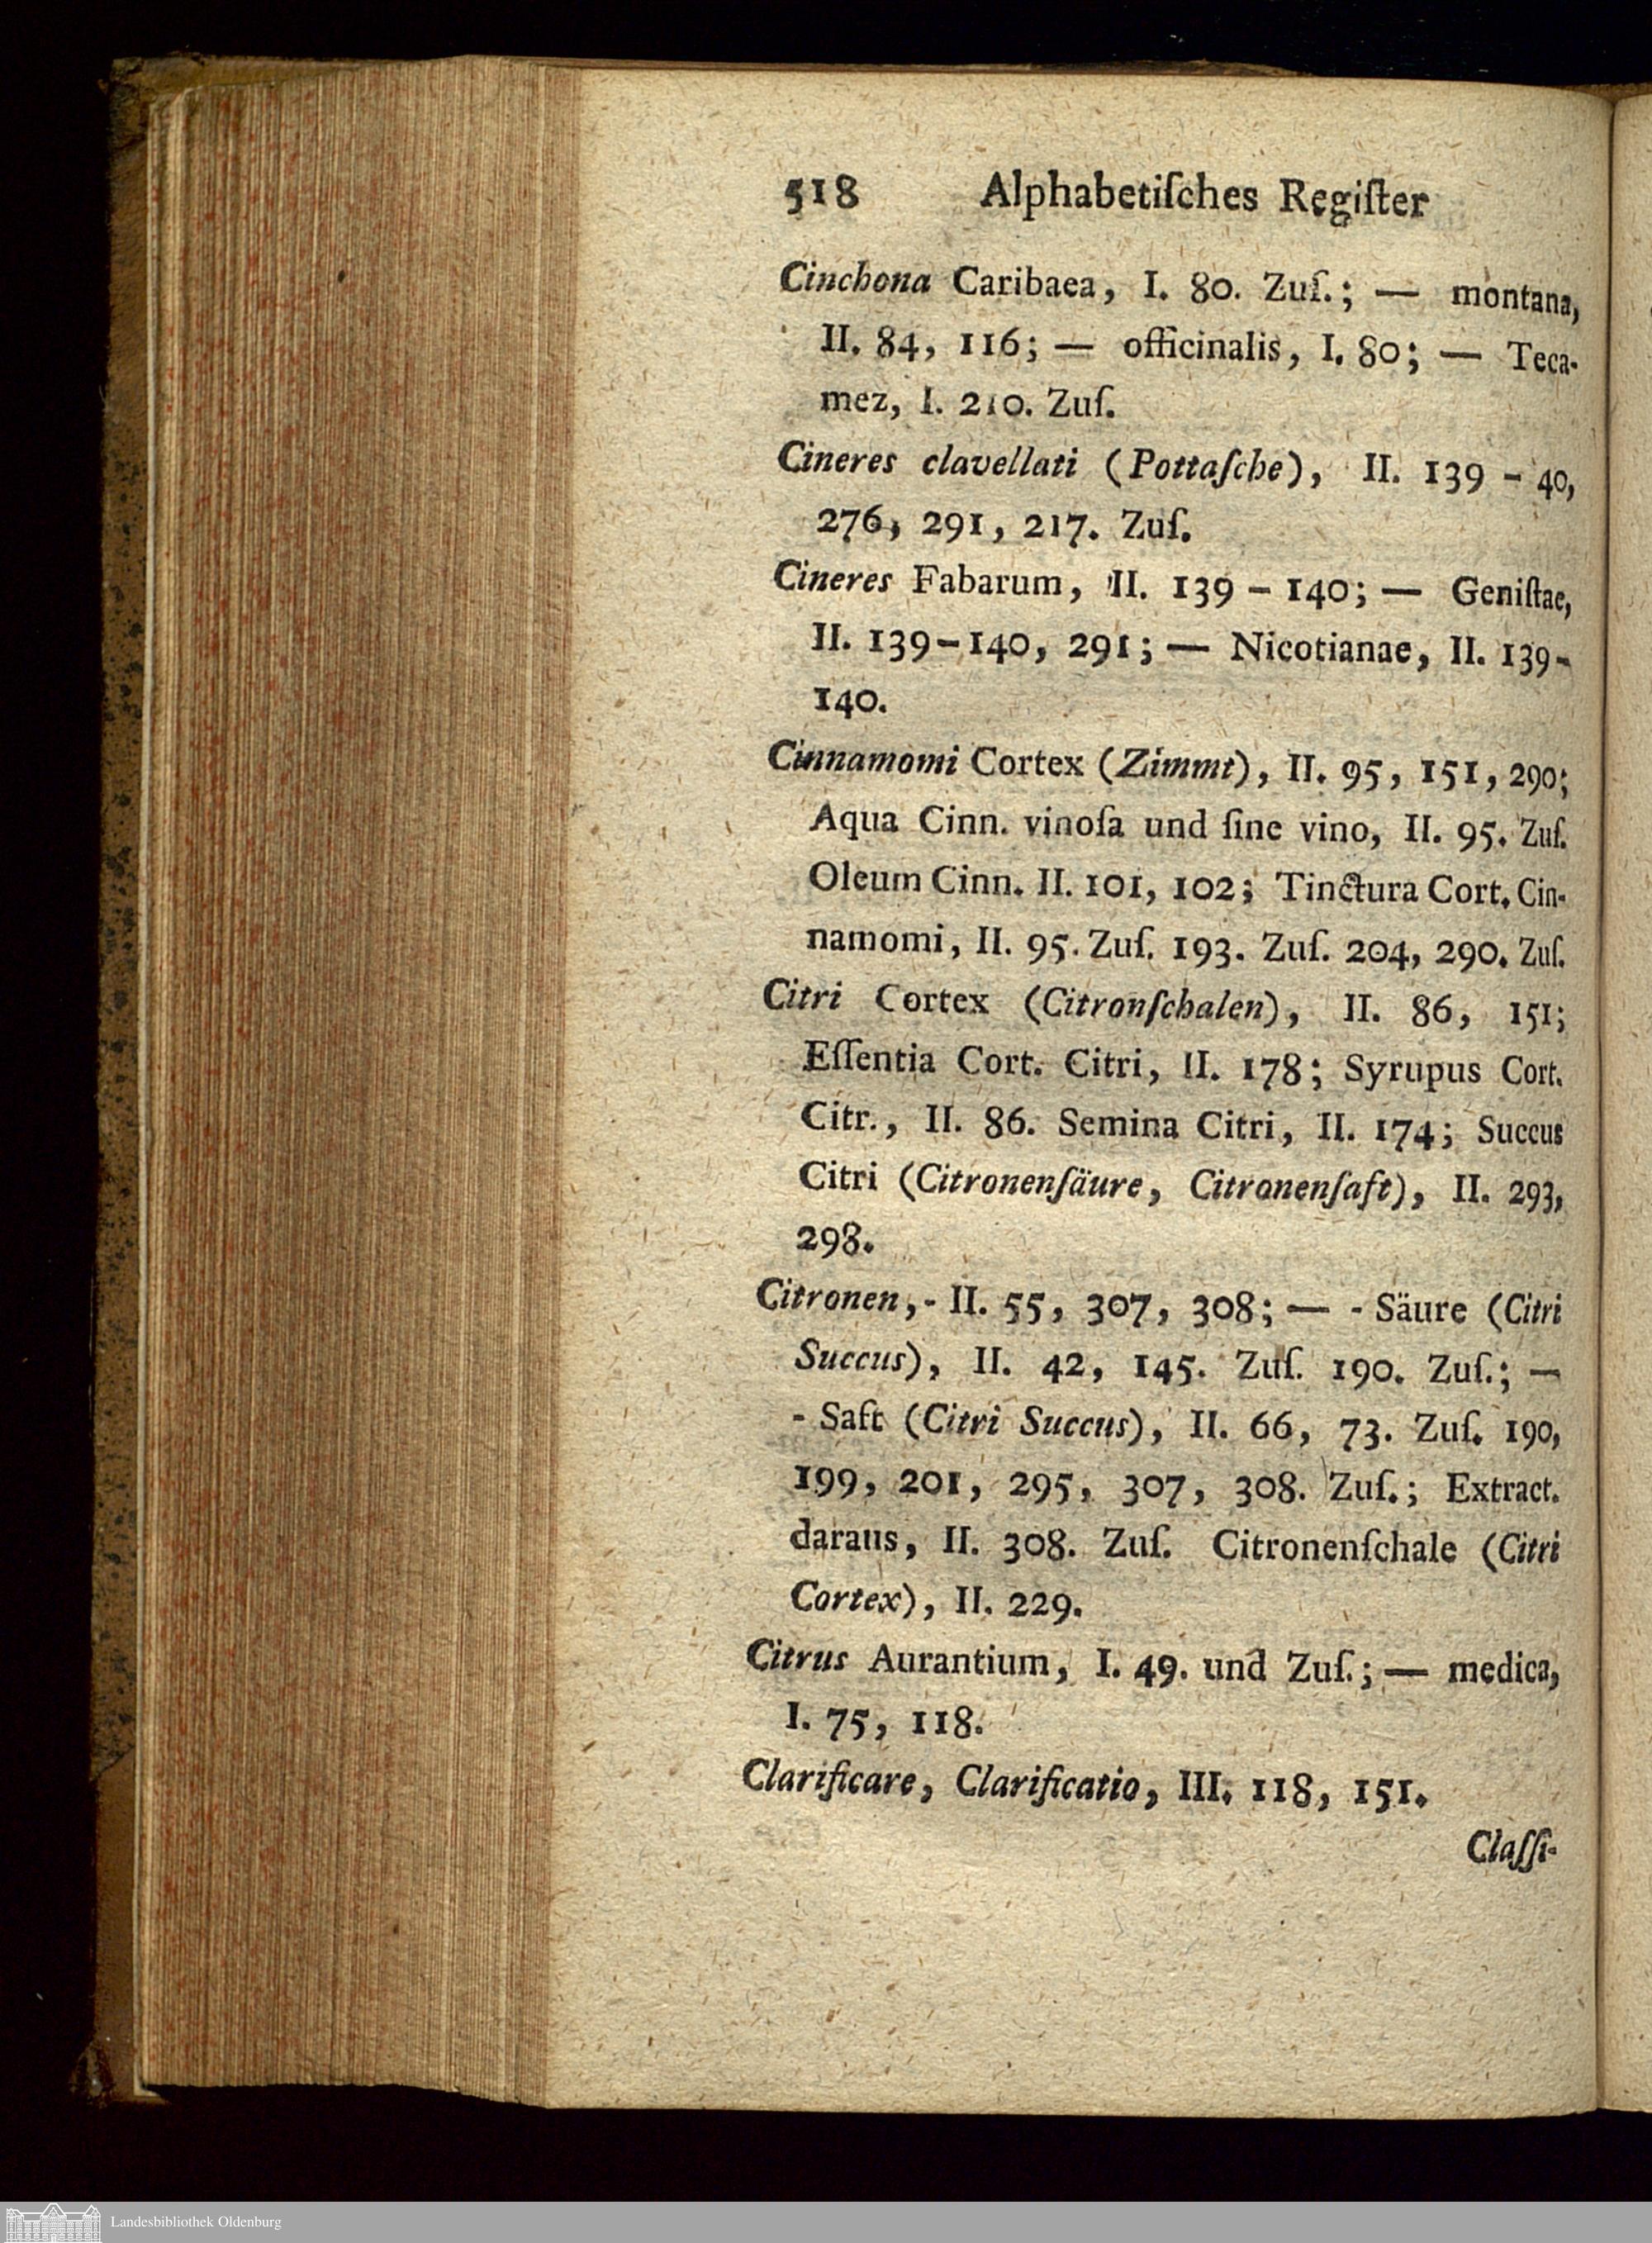 518 Alphabetiſches Regiſter
Cinchona Caribaea, I. 80. Zuſ.; — montana,
II. 84, 116; — officinalis, I. 80; — Teca-
mez, I. 210. Zuſ.
Cineres clavellati (Pottaſche), II. 139 - 40,
276, 291, 217. Zuſ.
Cineres Fabarum, II. 139 - 140; — Geniſtae,
II. 139-140, 291; — Nicotianae, II. 139-
140.
Cinnamomi Cortex (Zimmt), II. 95, 151, 290;
Aqua Cinn. vinoſa und ſine vino, II. 95. Zuſ.
Oleum Cinn. II. 101, 102; Tinctura Cort. Cin-
namomi, II. 95. Zuſ. 193. Zuſ. 204, 290. Zuſ.
Citri Cortex (Citronſchalen), II. 86, 151;
Eſſentia Cort. Citri, II. 178; Syrupus Cort.
Citr., II. 86. Semina Citri, II. 174; Succus
Citri (Citronenſäure, Citronenſaft), II. 293,
298.
Citronen,- II. 55, 307, 308; — - Säure (Citri
Succus), II. 42, 145. Zuſ. 190. Zuſ.; —
- Saft (Citri Succus), II. 66, 73. Zuſ. 190,
199, 201, 295, 307, 308. Zuſ.; Extract.
daraus, II. 308. Zuſ. Citronenſchale (Citri
Cortex), II. 229.
Citrus Aurantium, I. 49. und Zuſ.; — medica,
I. 75, 118.
Clarificare, Clarificatio, III. 118, 151.
Claſſi-
Landesbibliothek Oldenburg